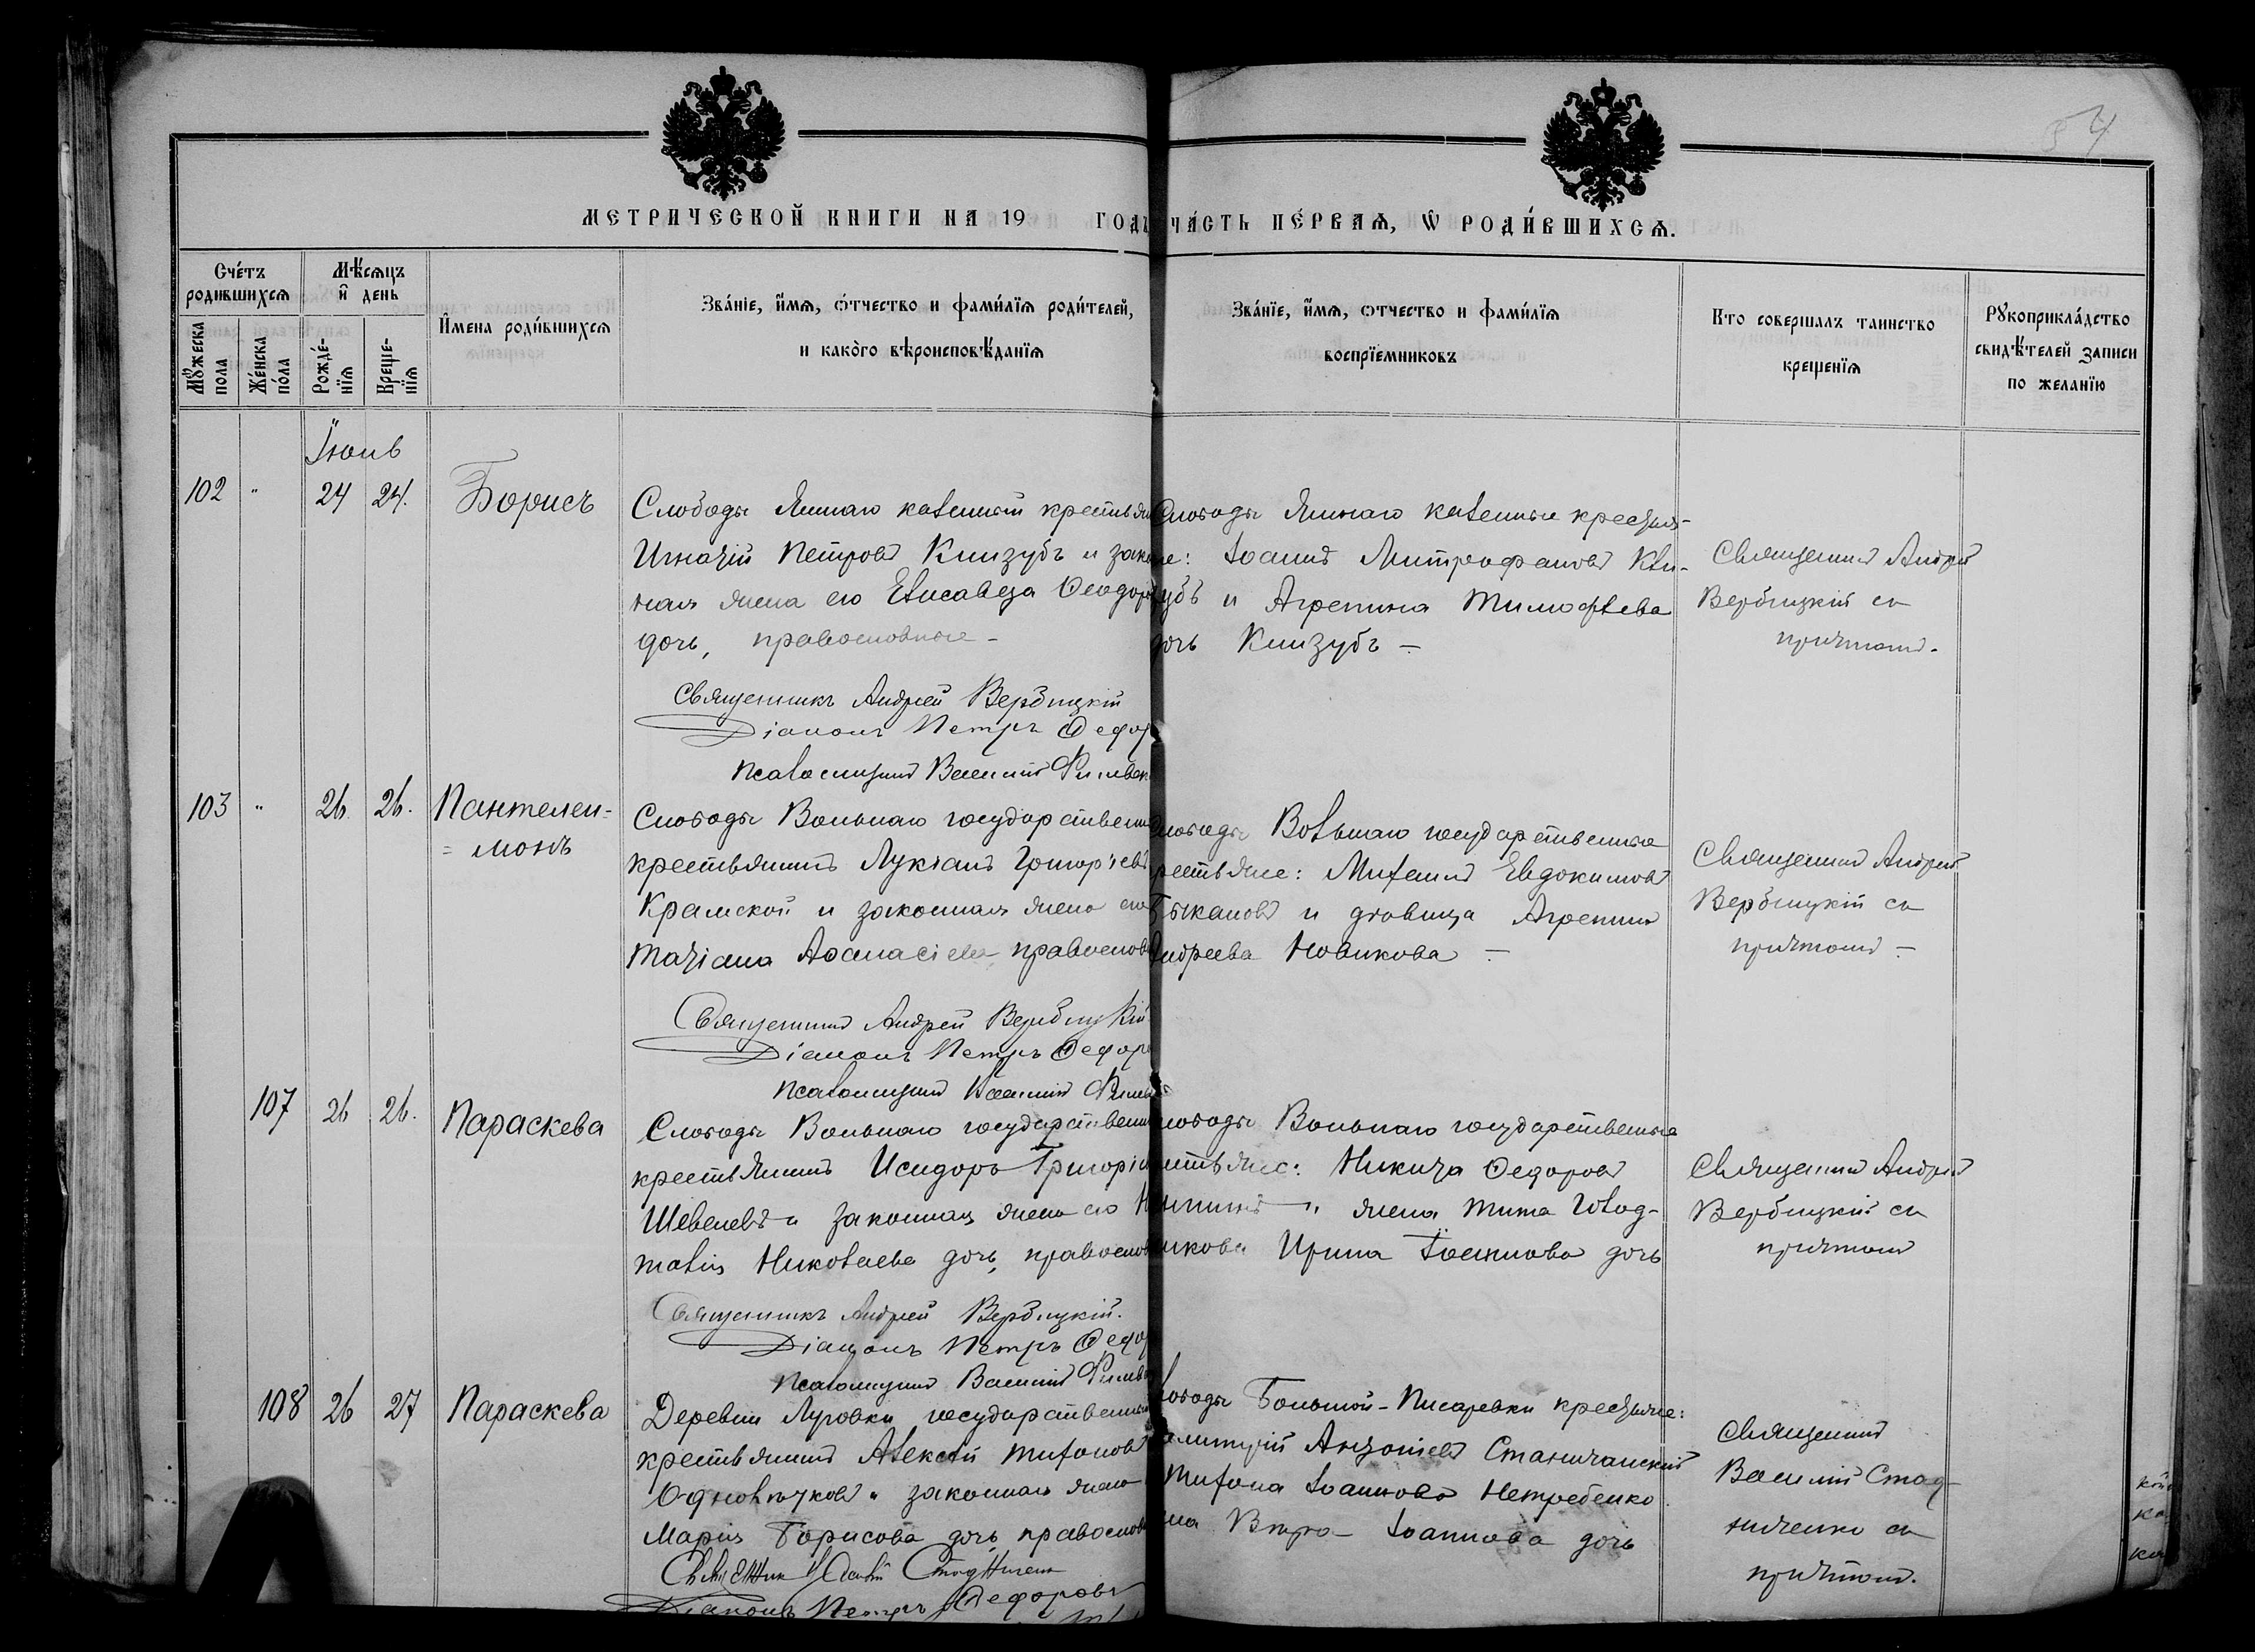 54
МЕТРИЧЕСКОЙ КНИГИ НА 19 ГОДЪ ЧА́СТЬ ПЕ́РВАѦ, Ѡ РОДИ́ВШИХСѦ.
Сче́тъ родившихсѧ
Мꙋжеска пола
Же́нска по́ла
Мѣ́сѧцъ и день
Рожде́нїѧ
Креще-нїѧ
Имена роди́вшихсѧ
Зва́нїе, и́мѧ, о́тчество и фами́лїѧ роди́телей,
и како́го вѣроисповѣ́данїѧ
Зва́нїе, и́мѧ, отчество и фами́лїѧ
воспрїемниковъ
Кто совершалъ таинство
крещенїѧ
Рꙋкоприкла́дство
свидѣ́телей записи
по желанїю
Іюнь
102 " 24 24. Борисъ
Слободы Ямнаго казенный крестьян
Игнатій Петровъ Кинзубъ и закон
ная жена его Елисавета Ѳеодоро
дочь, православные -
Слободы Ямнаго казенные крестья-
не: Іоаннъ Митрофановъ Кин-
зубъ и Агрепина Тимофѣева
дочь Кинзубъ -
Священникъ Андрей
Вербицкій съ
причтомъ.
Священникъ Андрей Вербицкій
Діаконъ Петръ Ѳедор
Псаломщикъ Василій
103 " 26 26. Пантелеи-
= монъ
Слободы Вольнаго государственн
крестьянинъ Лукіанъ Григорьевъ
Крамской и законная жена его
Татіана Аѳанасіева православ
Слободы Вольнаго государственные
крестьяне: Михаилъ Евдокимовъ
Цыкановъ и дѣвица Агрепина
Андреева Новикова -
Священникъ Андрей
Вербицкій съ
причтомъ -
Священникъ Андрей Вербицкій
Діаконъ Петръ Ѳедоро
Псаломщикъ Василій
107 26 26. Параскева
Слободы Вольнаго государственн
крестьянинъ Исидоръ Григорі
Шевелевъ и законная жена его На
талія Николаева дочь, православ
Слободы Вольнаго государственные
крестьяне: Никита Ѳедоровъ
и жена Тита
Ирина Іоаннова дочь
Священникъ Андрей
Вербицкій съ
причтомъ
Священникъ Андрей Вербицкій.
Діаконъ Петръ Ѳедор
Псаломщикъ Василій
108 26 27 Параскева
Деревни Луговки государственный
крестьянинъ Алексѣй Тихоновъ
и законная жена
Марія Борисова дочь, православ
Слободы Большой-Писаревки крестьяне:
Антоніевъ Станичанскій
Тихона Іоаннова Нетребенко
жена Вѣра Іоаннова дочь
Священникъ
Василій Стад-
ниченко съ
причтомъ.
Діаконъ Петръ Ѳедоровъ